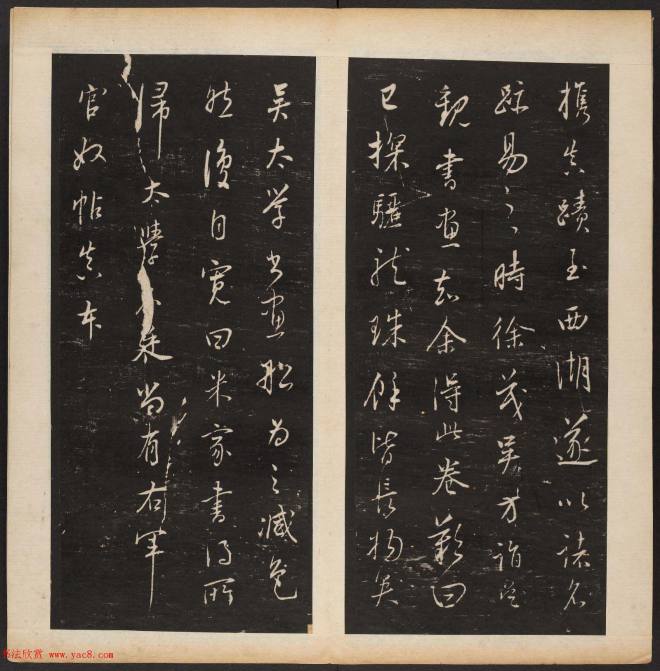 攜真蹟至西湖遂以諸名
跡易之時徐茂吳方詣吳
觀書畫知余得此卷歎曰
已探驪龍珠餘皆長物矣
吳太學書畫船為之減色
然復自寬曰米家書得所
歸太學名廷尚有右軍
官奴帖真本
书法欣赏-www.yac8.com